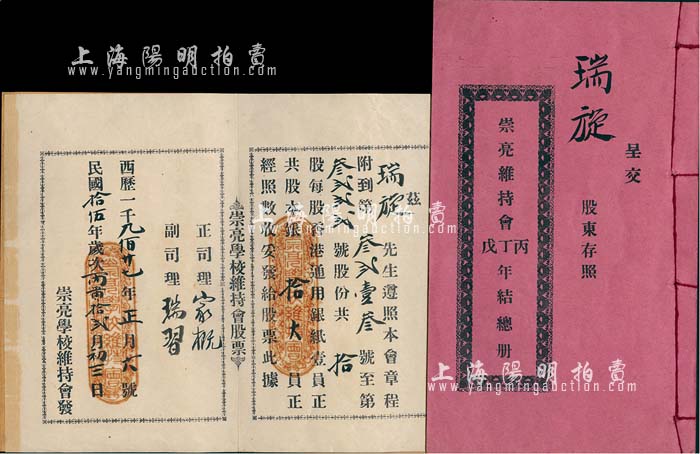 上海陽明拍賣
www.yangmingauction.com
瑞旋
呈交
股東存照
崇亮維持會丙丁戊年結總册
茲
瑞旋先生遵照本會章程
附到第叁貳壹叁號至第
叁貳貳貳號股份共拾
股每股港通用銀紙壹員正
共股本銀拾大員正
經照數收妥發給股票此據
崇亮學校維持會股票
正司理家概
副司理瑞習
西歷一千九佰廿七年正月六號
民國拾伍年歲次丙寅拾貳月初三日
崇亮學校維持會發
上海陽明拍賣
www.yangmingauction.com
上海陽明拍賣
www.yangmingauction.com